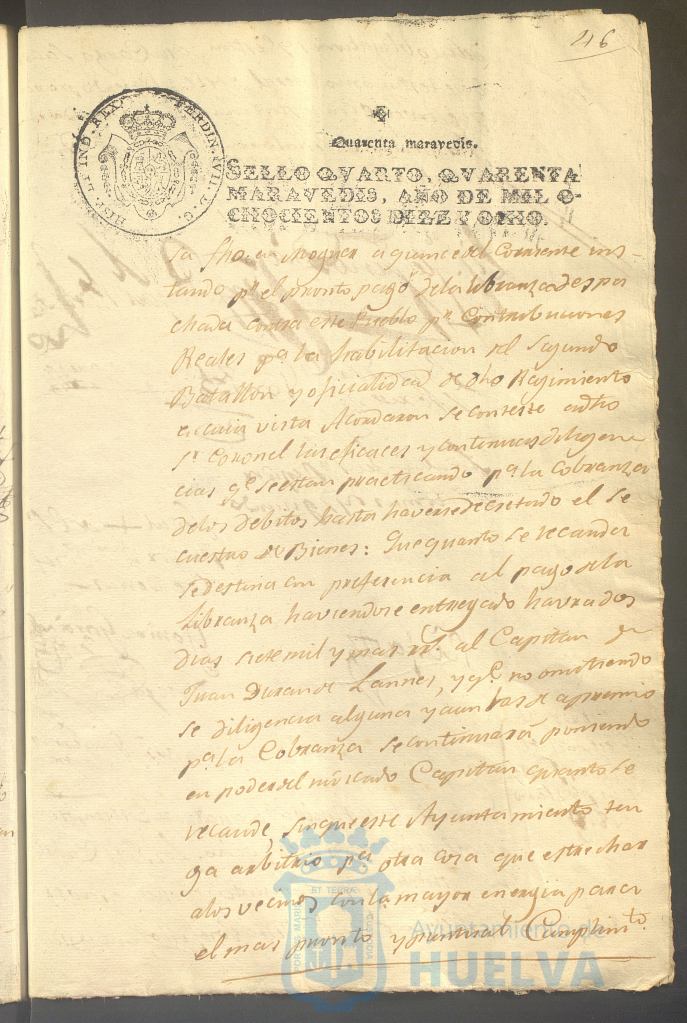 46
HISP. ET IND. REX. FERDIN. VII. D. G.
Quarenta maravedis.
SELLO QVARTO, QVARENTA
MARAVEDIS, AÑO DE MIL O-
CHOCIENTOS DIEZ Y OCHO.
sa fha. en Moguer a quince del Corriente ins-
tando pr. el pronto pago de la libranza despa
chada contra este Pueblo pr. Contribuciones
Reales pa. la habilitacion del Segundo
Batallon y oficialidad de dho Regimiento
a cuia vista Acordaron se conteste a dho
Sr. Coronel las eficaces y continuas diligen
cias qe. se estan practicando pa. la Cobranza
de los debitos hasta haverse decretado el se
cuestro de Bienes: Que quanto se recauda
se destina con preferencia al pago de la
Libranza haviendose entregado havra dos
dias siete mil y mas rs. al Capitan Dn.
Juan Duran de Lannes, y qe. no omitiendo
se diligencia alguna y aun las de apremio
pa. la Cobranza se continuará poniendo
en poder del indicado Capitan quanto se
recaude, sin que este Ayuntamiento ten
ga arbitrio pa. otra cosa que estrechar
a los vecinos con la mayor energia para
el mas pronto y puntual Cumplimto.
PORTUS MARIS ET TERRAE CUSTODIA
Ayuntamiento de
HUELVA